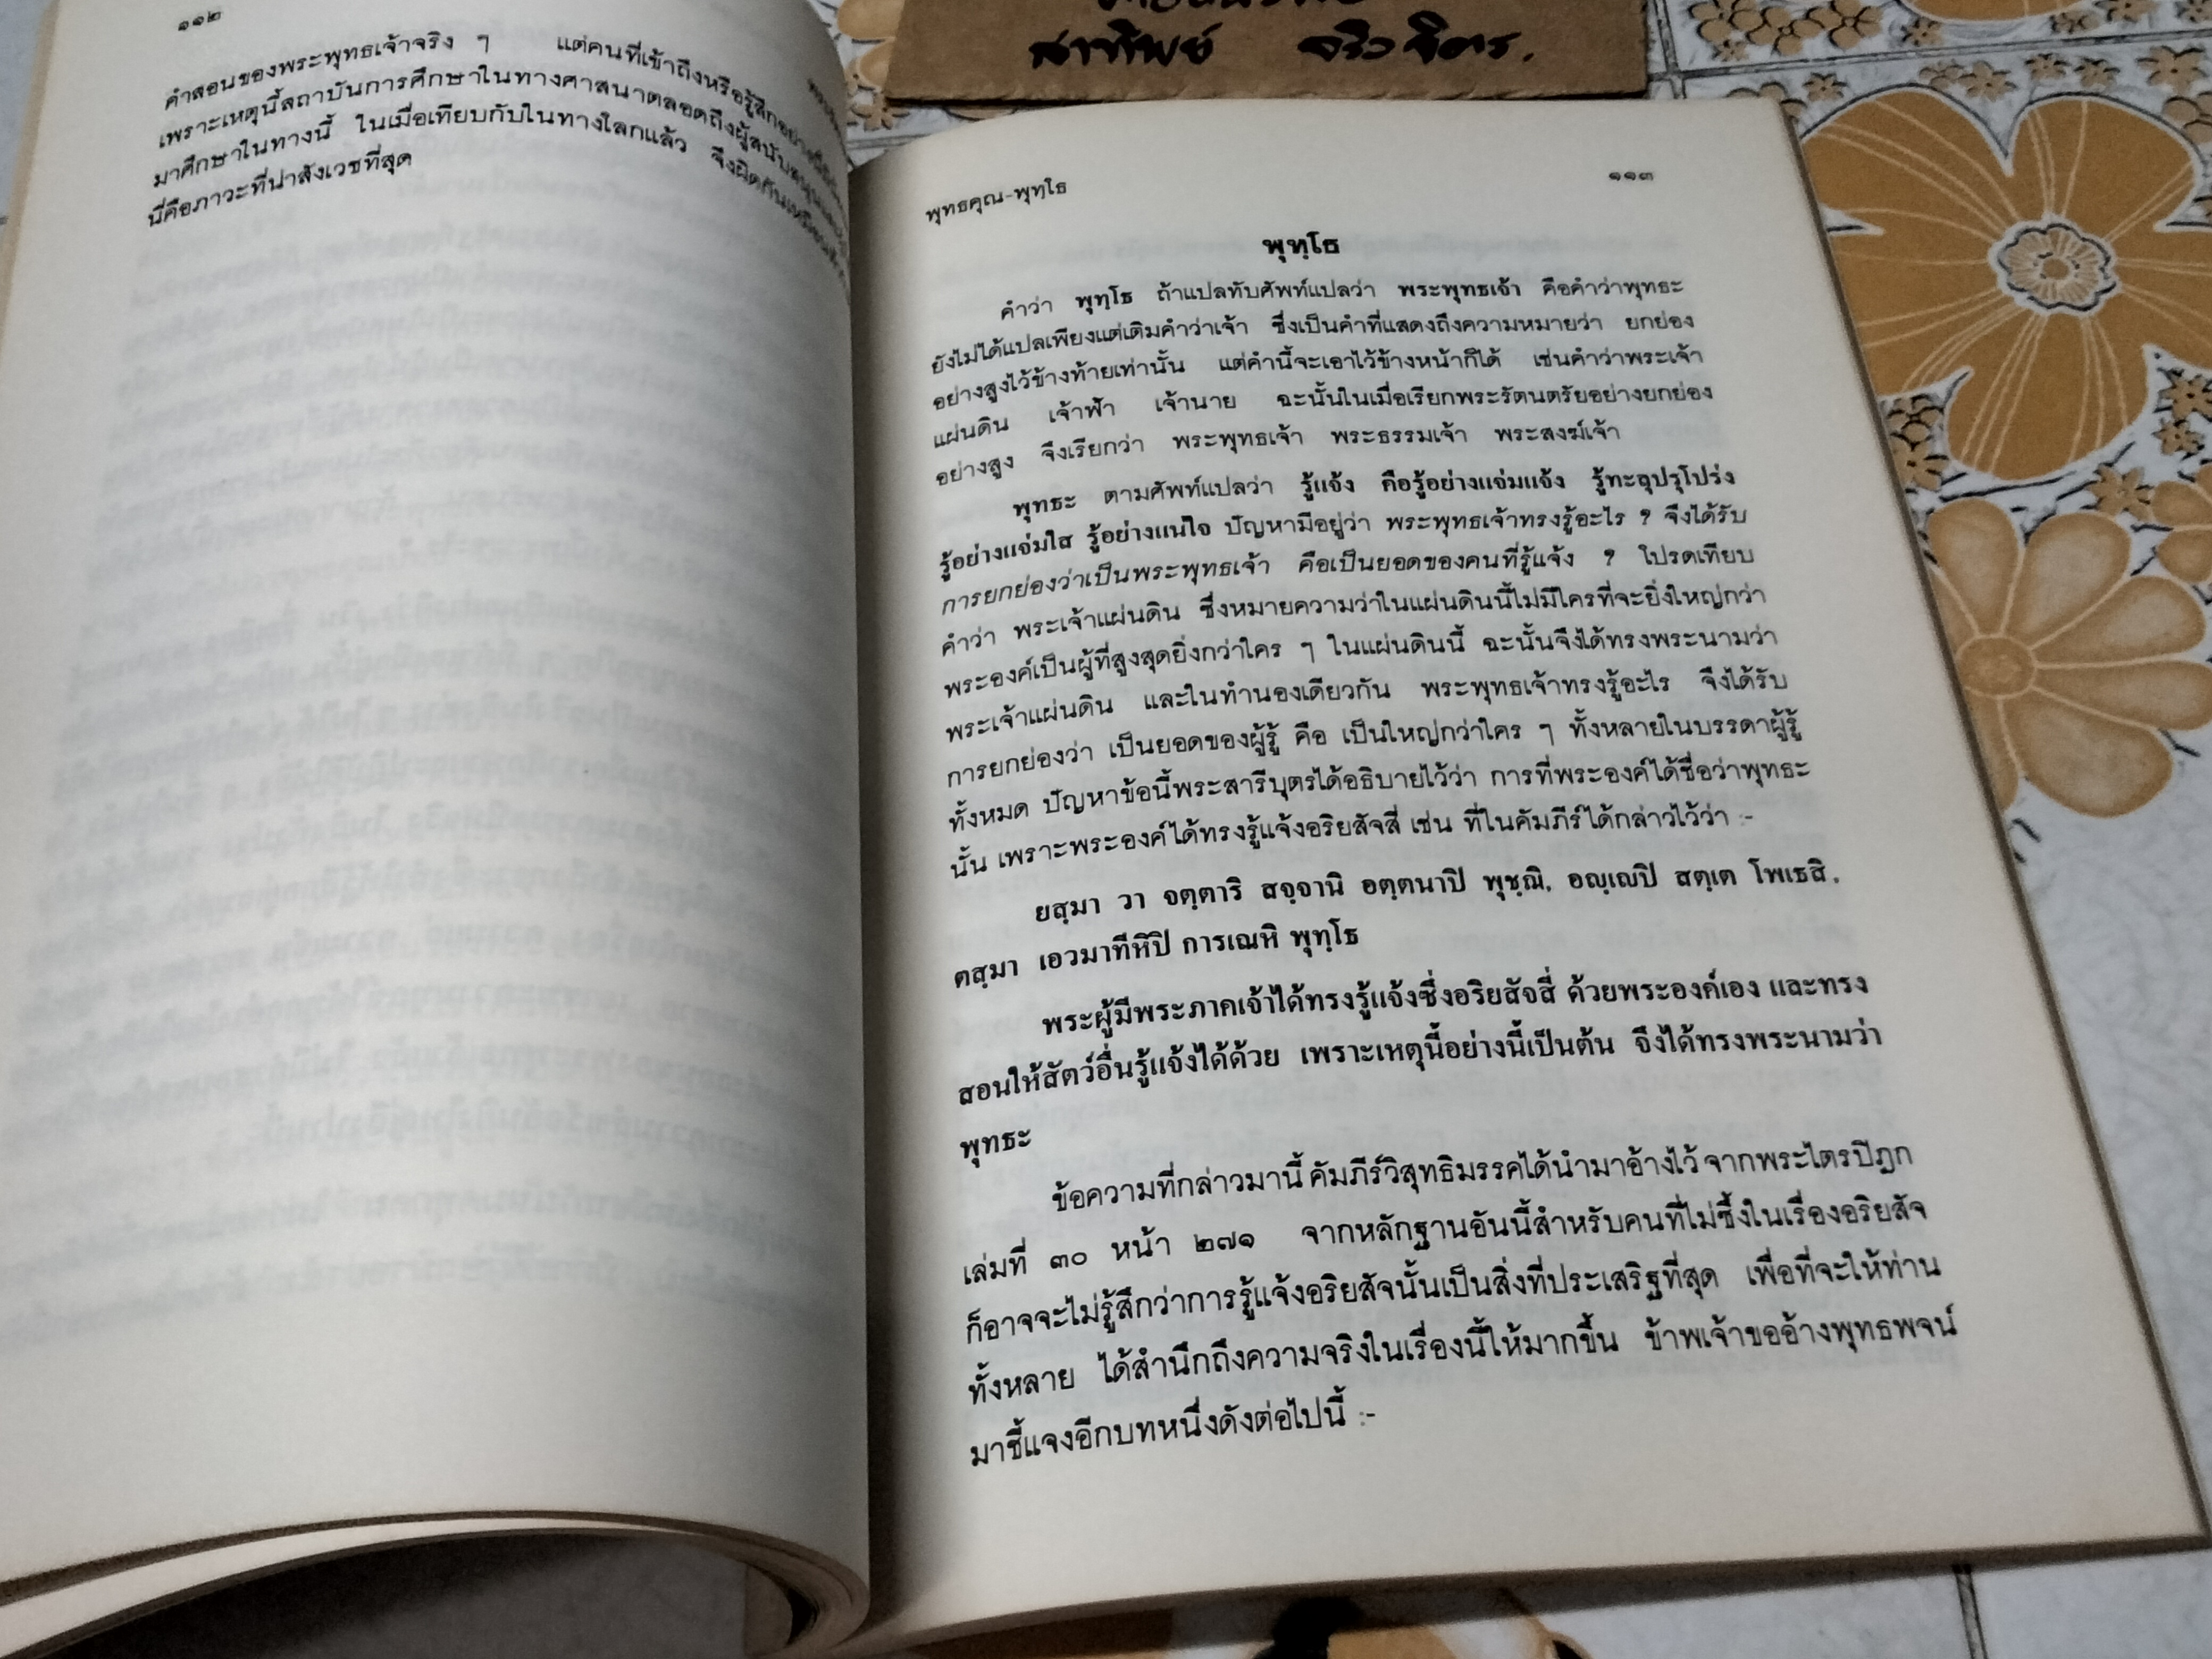 สาทิพย์
๑๑๒
คำสอนของพระพุทธเจ้าจริง ๆ แต่คนที่เข้าถึงหรือรู้สึกอย่างนี้มี
เพราะเหตุนี้สถาบันการศึกษาในทางศาสนาตลอดถึงผู้สนับสนุน
มาศึกษาในทางนี้ ในเมื่อเทียบกับในทางโลกแล้ว จึงผิดกัน
นี่คือภาวะที่น่าสังเวชที่สุด
พุทธคุณ-พุทฺโธ ๑๑๓
พุทฺโธ
คำว่า พุทฺโธ ถ้าแปลทับศัพท์แปลว่า พระพุทธเจ้า คือคำว่าพุทธะ
ยังไม่ได้แปลเพียงแต่เติมคำว่าเจ้า ซึ่งเป็นคำที่แสดงถึงความหมายว่า ยกย่อง
อย่างสูงไว้ข้างท้ายเท่านั้น แต่คำนี้จะเอาไว้ข้างหน้าก็ได้ เช่นคำว่าพระเจ้า
แผ่นดิน เจ้าฟ้า เจ้านาย ฉะนั้นในเมื่อเรียกพระรัตนตรัยอย่างยกย่อง
อย่างสูง จึงเรียกว่า พระพุทธเจ้า พระธรรมเจ้า พระสงฆ์เจ้า
พุทธะ ตามศัพท์แปลว่า รู้แจ้ง คือรู้อย่างแจ่มแจ้ง รู้ทะลุปรุโปร่ง
รู้อย่างแจ่มใส รู้อย่างแน่ใจ ปัญหามีอยู่ว่า พระพุทธเจ้าทรงรู้อะไร ? จึงได้รับ
การยกย่องว่าเป็นพระพุทธเจ้า คือเป็นยอดของคนที่รู้แจ้ง ? โปรดเทียบ
คำว่า พระเจ้าแผ่นดิน ซึ่งหมายความว่าในแผ่นดินนี้ไม่มีใครที่จะยิ่งใหญ่กว่า
พระองค์เป็นผู้ที่สูงสุดยิ่งกว่าใคร ๆ ในแผ่นดินนี้ ฉะนั้นจึงได้ทรงพระนามว่า
พระเจ้าแผ่นดิน และในทำนองเดียวกัน พระพุทธเจ้าทรงรู้อะไร จึงได้รับ
การยกย่องว่า เป็นยอดของผู้รู้ คือ เป็นใหญ่กว่าใคร ๆ ทั้งหลายในบรรดาผู้รู้
ทั้งหมด ปัญหาข้อนี้พระสารีบุตรได้อธิบายไว้ว่า การที่พระองค์ได้ชื่อว่าพุทธะ
นั้น เพราะพระองค์ได้ทรงรู้แจ้งอริยสัจสี่ เช่น ที่ในคัมภีร์ได้กล่าวไว้ว่า :-
ยสฺมา วา จตฺตาริ สจฺจานิ อตฺตนาปิ พุชฺฌิ, อญฺเญปิ สตฺเต โพเธสิ,
ตสฺมา เอวมาทีหิปิ การเณหิ พุทฺโธ
พระผู้มีพระภาคเจ้าได้ทรงรู้แจ้งซึ่งอริยสัจสี่ ด้วยพระองค์เอง และทรง
สอนให้สัตว์อื่นรู้แจ้งได้ด้วย เพราะเหตุนี้อย่างนี้เป็นต้น จึงได้ทรงพระนามว่า
พุทธะ
ข้อความที่กล่าวมานี้ คัมภีร์วิสุทธิมรรคได้นำมาอ้างไว้ จากพระไตรปิฎก
เล่มที่ ๓๐ หน้า ๒๗๑ จากหลักฐานอันนี้สำหรับคนที่ไม่ซึ้งในเรื่องอริยสัจ
ก็อาจจะไม่รู้สึกว่าการรู้แจ้งอริยสัจนั้นเป็นสิ่งที่ประเสริฐที่สุด เพื่อที่จะให้ท่าน
ทั้งหลาย ได้สำนึกถึงความจริงในเรื่องนี้ให้มากขึ้น ข้าพเจ้าขออ้างพุทธพจน์
มาชี้แจงอีกบทหนึ่งดังต่อไปนี้ :-